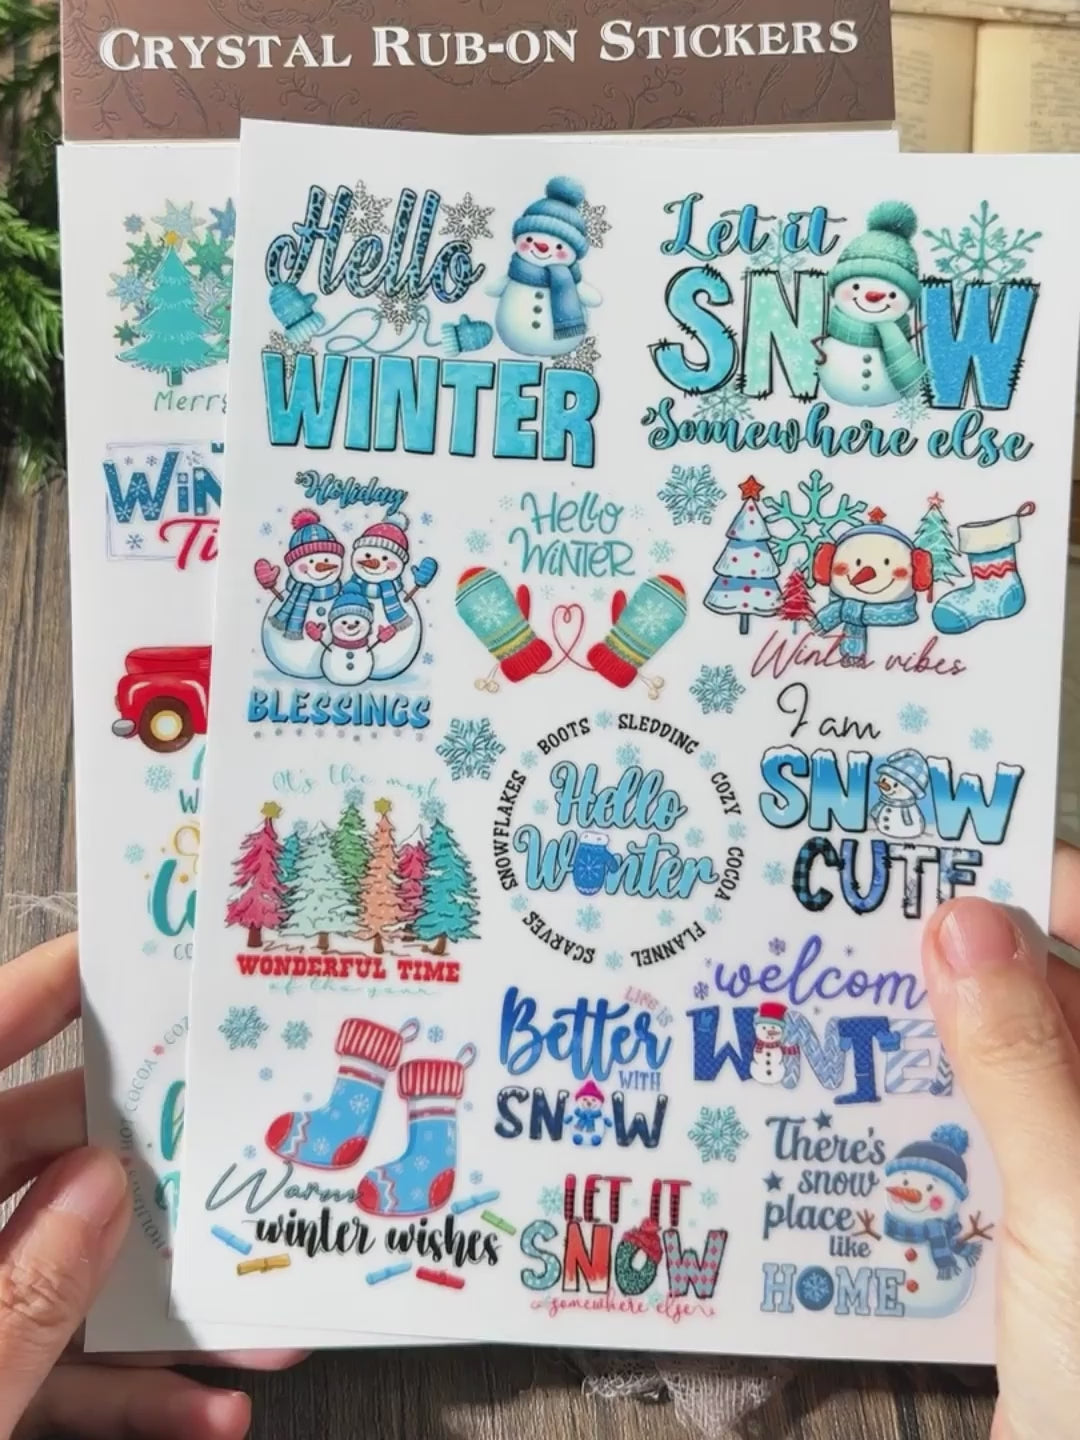 CRYSTAL RUB-ON STICKERS
Hello
WINTER
Let it
SNOW
Somewhere else
Merry
WIN
Ti
Holiday
BLESSINGS
Hello
WINTER
Winter vibes
I am
SNOW
CUTE
It's the most
WONDERFUL TIME
of the year
BOOTS SLEDDING COZY COCOA FLANNEL SCARVES SNOWFLAKES
Hello
Winter
LIFE IS
Better
WITH
SNOW
welcom
WINTE
Warm
winter wishes
LET IT
SNOW
somewhere else
There's
snow
place
like
HOME
COCOA